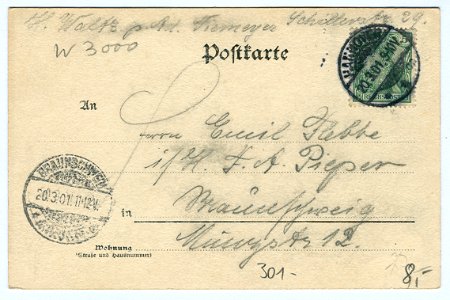 H. Waltz p. Ad. Niemeyer Schillerstr 29.
W 3000
Postkarte
HANNOVER
20.3.01.
An
Herrn Emil Klebbe
i/H. F. A. Pieper
BRAUNSCHWEIG
20.3.01. 11-12V.
in Braunschweig
Münzstr 12.
Wohnung
(Straße und Hausnummer)
301-
8,-